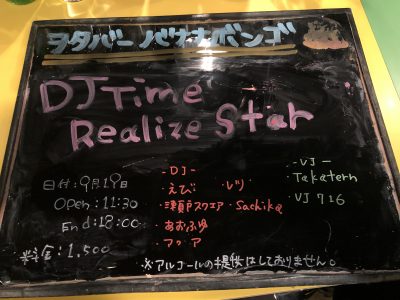 ヲタバー バナナボンゴ
DJ Time
Realize Star
日付:9月19日
Open:11:30
End:18:00
料金:1,500
-DJ-
・えび ・レツ
・瀬戸スクエア ・Sachika
・あおふゆ
・フゥア
-VJ-
・Takatern
VJ 716
※アルコールの提供はしておりません。